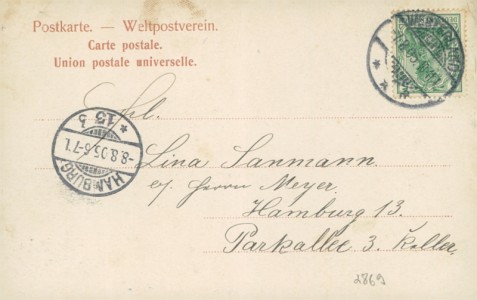 Postkarte. — Weltpostverein.
Carte postale.
Union postale universelle.
Frl.
Lina Sanmann
p/. Herrn Meyer,
Hamburg 13.
Parkallee 3. Keller,
HAMBURG
* 13 b
-8.8.05.6-7V.
2869